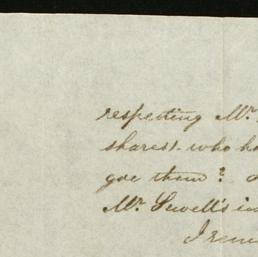 respecting Mr.
shares? who ha
gve them?
Mr. Sewell's in
I rem